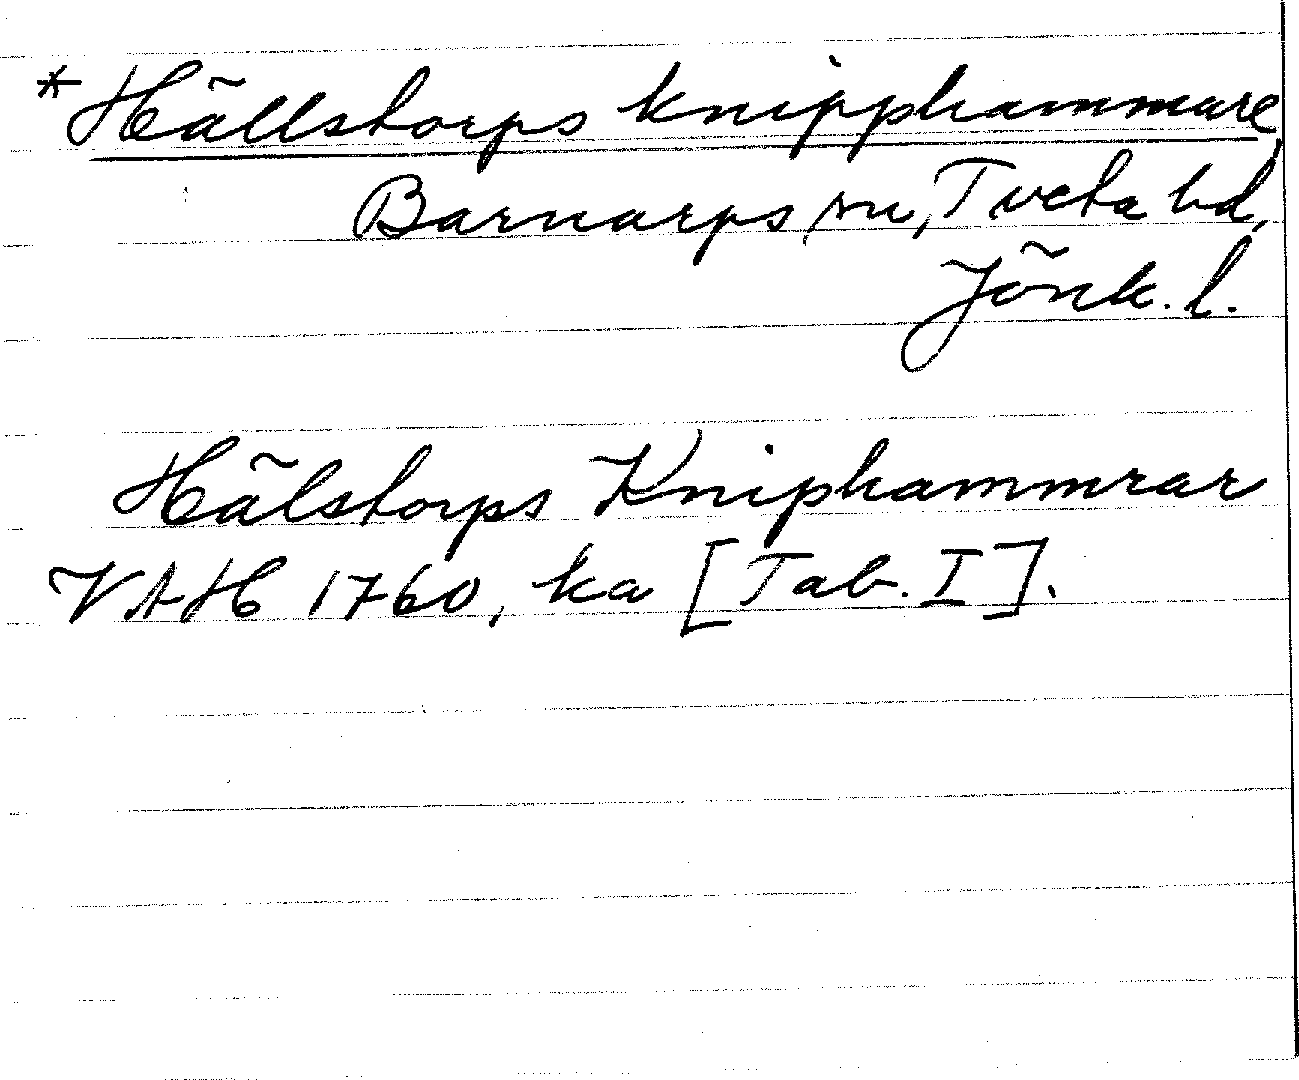 * Hällstorps knipphammare,
Barnarps sn, Tveta hd,
Jönk. l.
Hälstorps Kniphammrar
VAH 1760, ka [Tab. I].